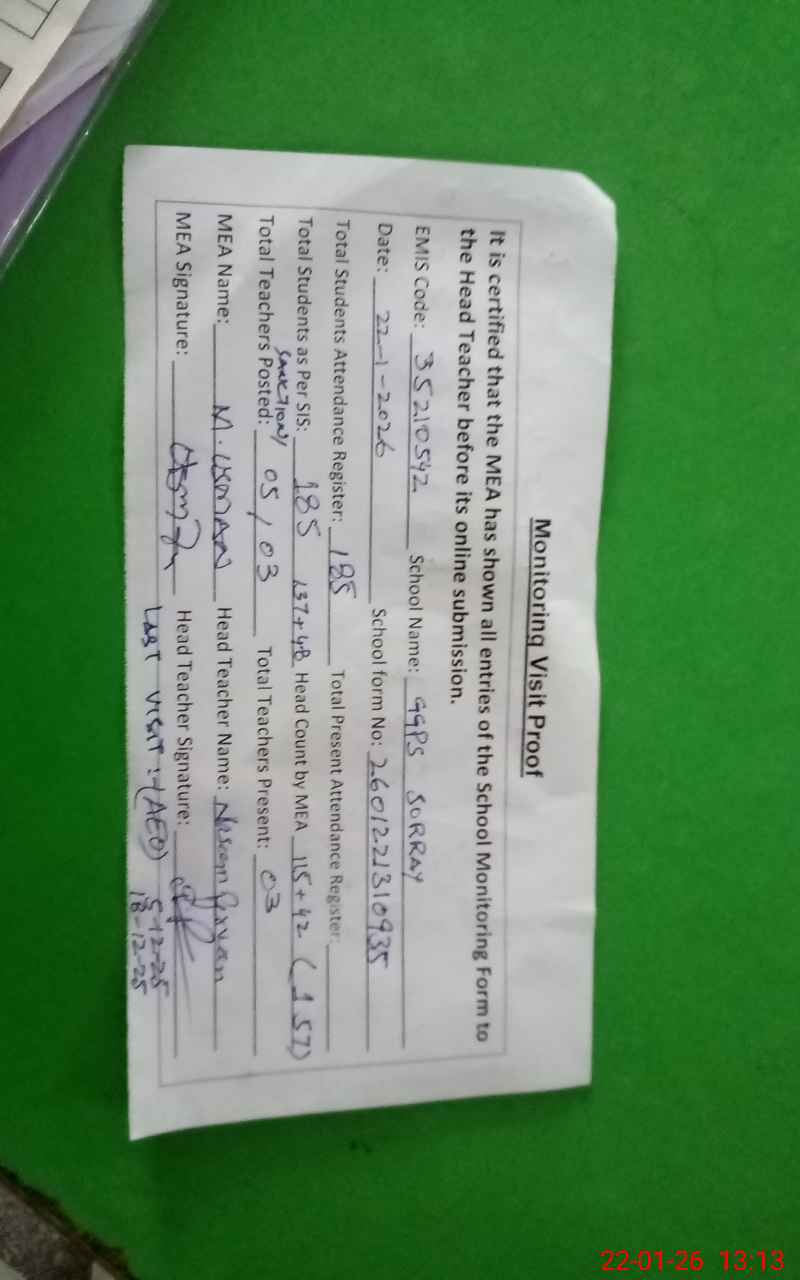 Monitoring Visit Proof
It is certified that the MEA has shown all entries of the School Monitoring Form to
the Head Teacher before its online submission.
EMIS Code: 35210542 School Name: GGPS SORRAY
Date: 22-1-2026 School form No: 2601221310935
Total Students Attendance Register: 185 Total Present Attendance Register:
Total Students as Per SIS: 185 137+48 Head Count by MEA 115+42 (157)
SANCTION/
Total Teachers Posted: 05/03 Total Teachers Present: 03
MEA Name: M. USMAN Head Teacher Name:
MEA Signature: Head Teacher Signature:
LAST VISIT :- (AEO) 5-12-25
18-12-25
22-01-26 13:13